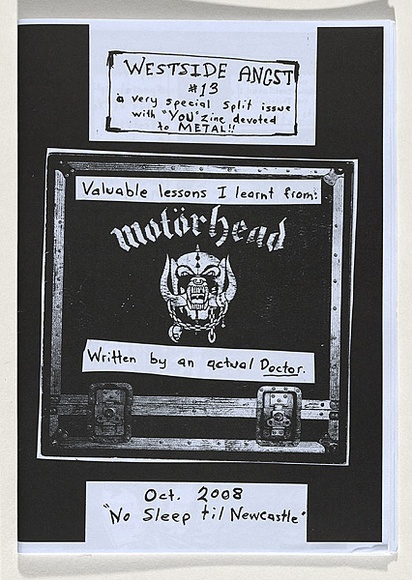 WESTSIDE ANGST
#13
a very special split issue
with "YOU" zine devoted
to METAL!!
Valuable lessons I learnt from:
motörhead
Written by an actual Doctor.
Oct. 2008
"No Sleep til Newcastle"